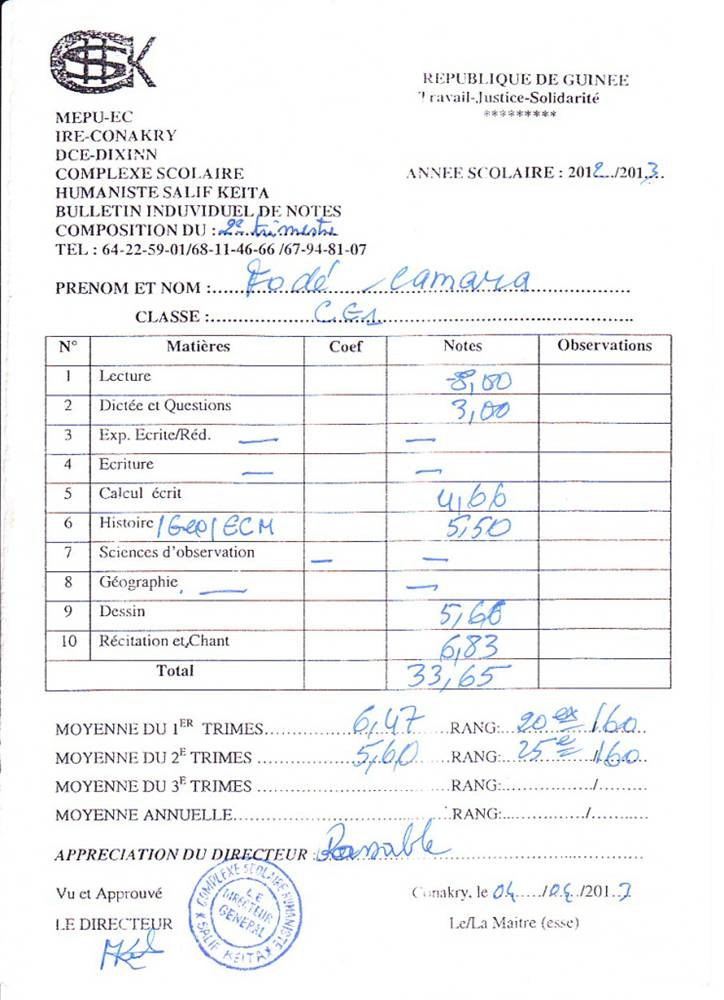 CSHSK
REPUBLIQUE DE GUINEE
Travail-Justice-Solidarité
*********
MEPU-EC
IRE-CONAKRY
DCE-DIXINN
COMPLEXE SCOLAIRE
HUMANISTE SALIF KEITA
ANNEE SCOLAIRE : 2012../2013..
BULLETIN INDUVIDUEL DE NOTES
COMPOSITION DU : 2e trimestre
TEL : 64-22-59-01/68-11-46-66 /67-94-81-07
PRENOM ET NOM : Fodé Camara
CLASSE : CE1
N° Matières Coef Notes Observations
1 Lecture 8,00
2 Dictée et Questions 3,00
3 Exp. Ecrite/Réd. — —
4 Ecriture — —
5 Calcul écrit 4,66
6 Histoire /Geo/ECM 5,50
7 Sciences d'observation — —
8 Géographie — —
9 Dessin 5,66
10 Récitation et Chant 6,83
Total 33,65
MOYENNE DU 1ER TRIMES 6,47 RANG: 20 ex /60
MOYENNE DU 2E TRIMES 5,60 RANG: 25e /60
MOYENNE DU 3E TRIMES RANG: /
MOYENNE ANNUELLE RANG: /
APPRECIATION DU DIRECTEUR : Passable
Vu et Approuvé
Conakry, le 04 /04 /2013
LE DIRECTEUR
Le/La Maitre (esse)
COMPLEXE SCOLAIRE HUMANISTE
LE DIRECTEUR GENERAL
SALIF KEITA